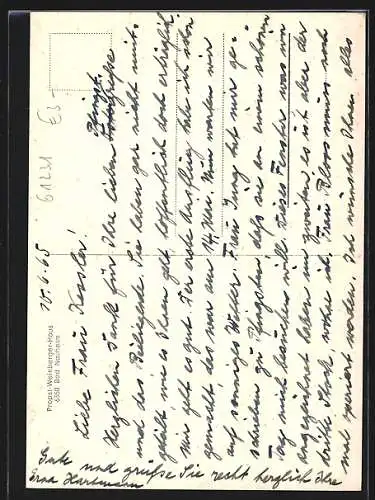 Propst-Weinberger-Haus
6350 Bad Nauheim
61231
E5
10.6.65
Liebe Frau Kessler!
Herzlichen Dank für Ihre lieben Pfingstgrüße
und der Beilegende. Sie haben gar nicht mit-
geteilt, wie es Ihnen geht, hoffentlich doch erträglich
mir geht es gut. Der erste Ausflug habe ich schon
gemacht das war am 14. Mai. Nun warten wir
auf sonniges Wetter. Frau Jung hat mir ge-
schrieben zu Pfingsten dass sie an einem schönen
Tag mich besuchen will. Dieses Fenster was wir
angezeichnet haben im zweiten ist aber der
dritte Stock wohne ich. Frau Kloos muss noch
mal operiert werden. Ich wünsche Ihnen alles
Gute und grüße Sie recht herzlich Ihre
Frau Hartmann